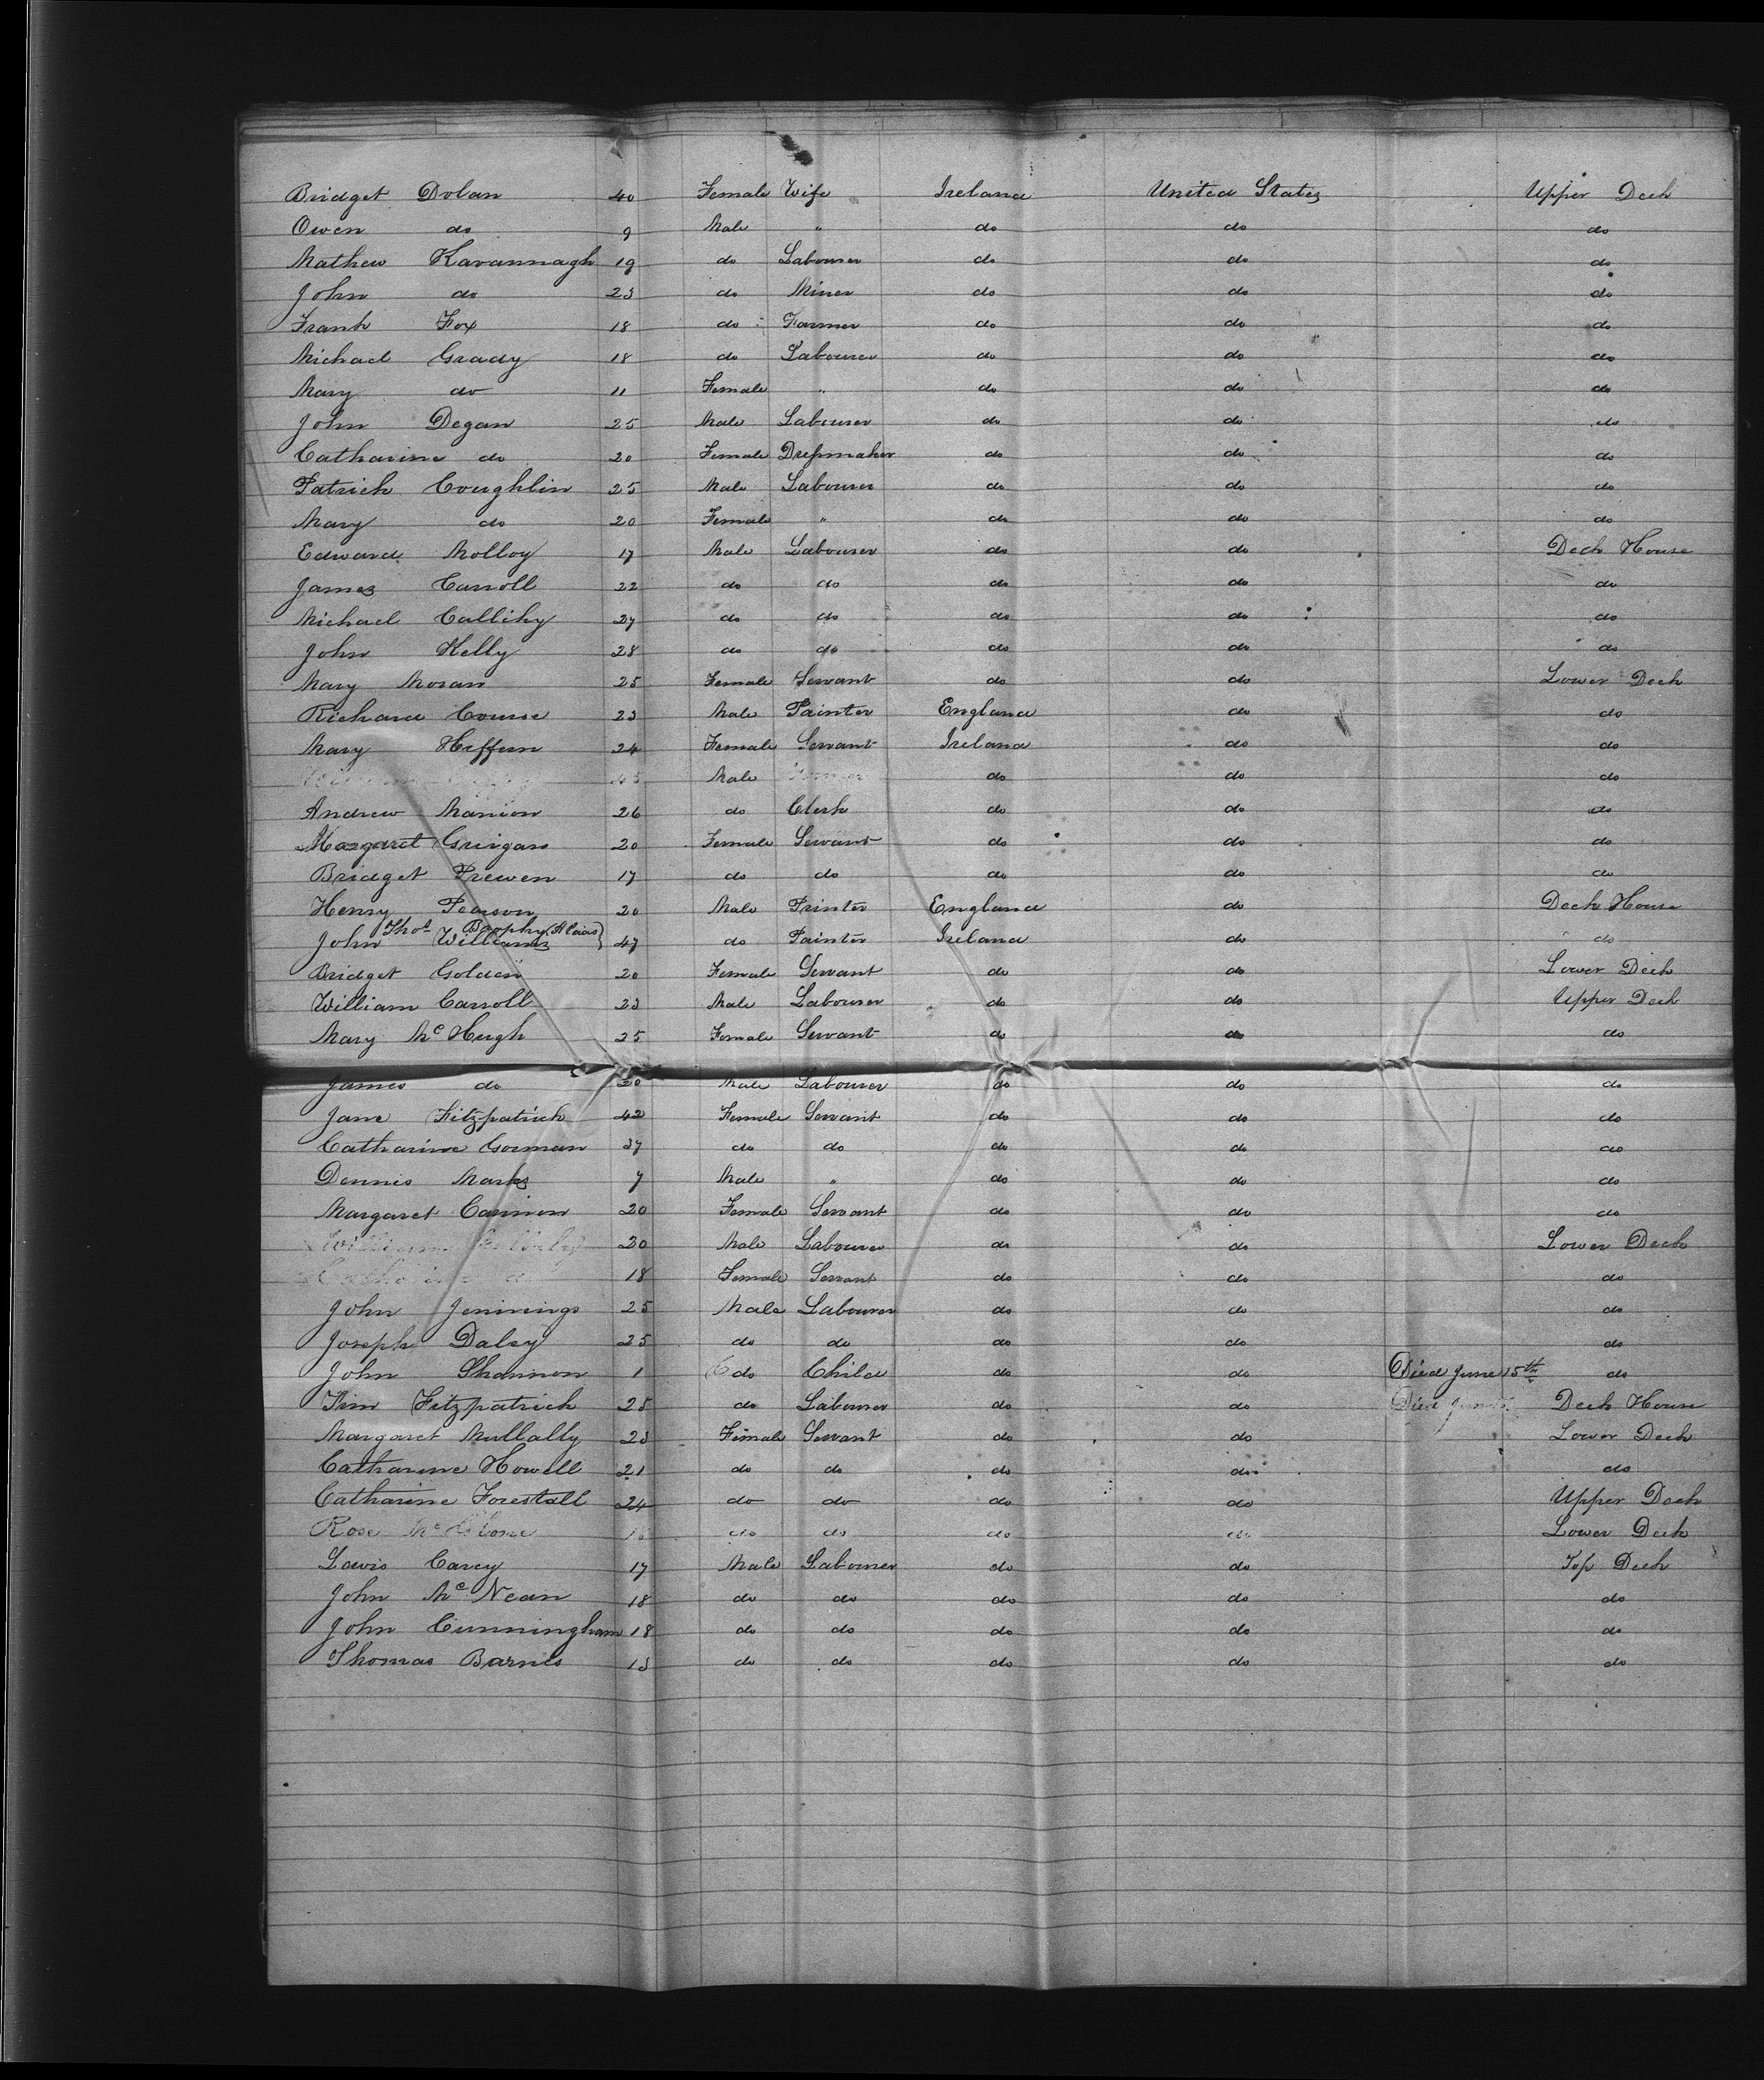 Bridget Dolan 40 Female Wife Ireland United States Upper Deck
Owen do 9 Male " do do do
Mathew Kavannagh 19 do Labourer do do do
John do 23 do Miner do do do
Frank Fox 18 do Farmer do do do
Michael Grady 18 do Labourer do do do
Mary do 11 Female " do do do
John Degan 25 Male Labourer do do do
Catharine do 20 Female Dressmaker do do do
Patrick Coughlin 25 Male Labourer do do do
Mary do 20 Female " do do do
Edward Molloy 17 Male Labourer do do Deck House
James Carroll 22 do do do do do
Michael Callihy 27 do do do do do
John Kelly 28 do do do do do
Mary Moran 25 Female Servant do do Lower Deck
Richard Course 23 Male Painter England do do
Mary Heffern 24 Female Servant Ireland do do
Male do do do
Andrew Manion 26 do Clerk do do do
Margaret Grivgan 20 Female Servant do do do
Bridget Prewen 17 do do do do do
Henry Pearson 20 Male Printer England do Deck House
Thos Brophy (Alias)
John Williams 47 do Painter Ireland do do
Bridget Golden 20 Female Servant do do Lower Deck
William Carroll 23 Male Labourer do do Upper Deck
Mary McHugh 25 Female Servant do do do
James do 20 Male Labourer do do do
Jane Fitzpatrick 42 Female Servant do do do
Catharine Gorman 37 do do do do do
Dennis Marks 7 Male " do do do
Margaret Cannion 20 Female Servant do do do
William 20 Male Labourer do do Lower Deck
Catharine 18 Female Servant do do do
John Jennings 25 Male Labourer do do do
Joseph Daley 25 do do do do do
John Shannon 1 do Child do do Died June 15th do
Tim Fitzpatrick 25 do Labourer do do Died June Deck House
Margaret Mullally 23 Female Servant do do Lower Deck
Catharine Howell 21 do do do do do
Catharine Forestall 24 do do do do Upper Deck
Rose McGlone do do do do Lower Deck
Lewis Carey 17 Male Labourer do do Top Deck
John McNean 18 do do do do do
John Cunningham 18 do do do do do
Thomas Barnes 13 do do do do do